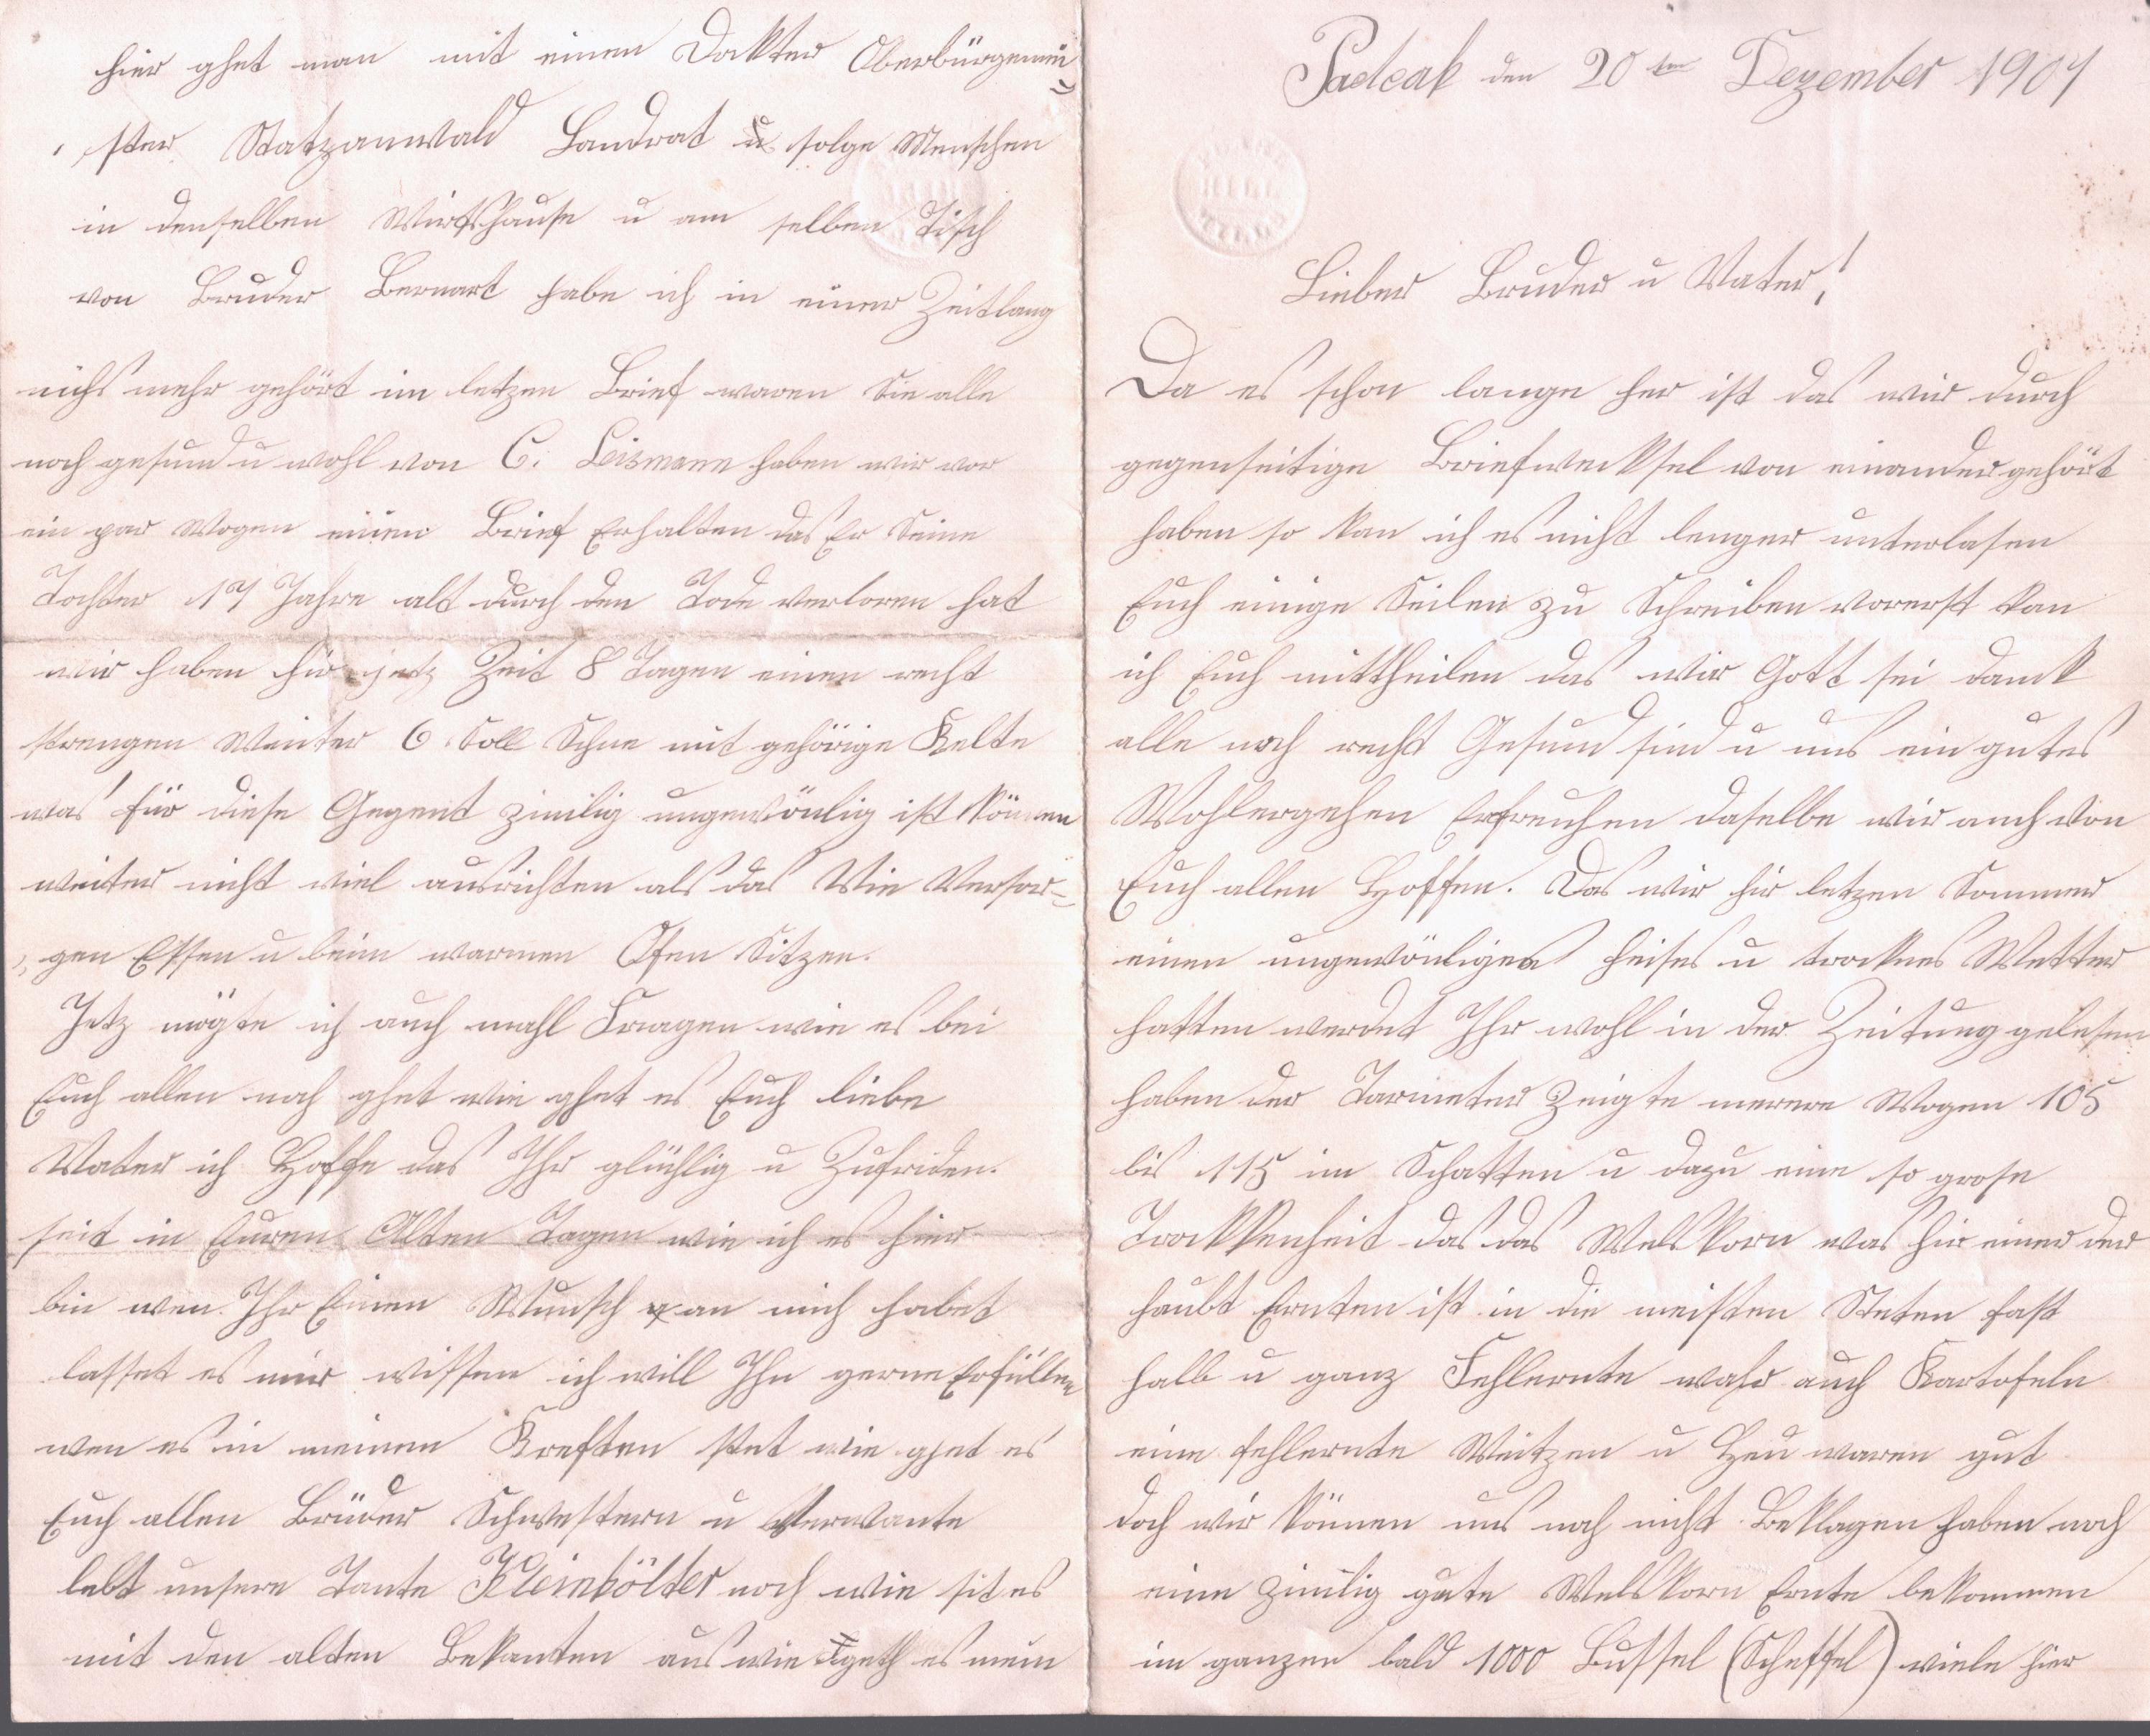 Padcah den 20ten Dezember 1901
Lieber Bruder u Vater!
Da es schon lange her ist das wir durch
gegenseitige Briefwecksel von einander gehört
haben so kan ich es nicht lenger unterlasen
Euch einige Seilen zu Schreiben vorerst kan
ich Euch mittheilen das wir Gott sei danck
alle noch recht Gesund sind u uns ein gutes
Wohlergehen Erfreuhen daselbe wir auch von
Euch allen Hoffen. Das wir hir letzen Sommer
einen ungewönliges heises u trocknes Wetter
hatten werdet Ihr wohl in der Zeitung gelesen
haben der Tarmeter Zeigte merere Wogen 105
bis 115 im Schatten u dazu eine so grose
Trockkenheit das das Welskorn was hir einer der
haubt Ernten ist in die meisten Steten fast
halb u ganz Fehlernte wahr auch Kartofeln
eine fehlernte Weitzen u Heu waren gut
doch wir können uns noch nicht Beklagen haben noch
eine zimlig gute Welskorn Ernte bekommen
im ganzen bald 1000 Bussel (Scheffel) viele hier
hier ghet man mit einen Dokter Oberbürgemei=
ster Statzanwald Landrat u solge Menschen
in denselben Wirtshause u am selben Tisch
von Bruder Bernart habe ich in einer Zeitlang
nichs mehr gehört im letzen Brief waren Sie alle
noch gesund u wohl von C. Leismann haben wir vor
ein par Wogen einen Brief Erhalten das Er Seine
Tochter 17 Jahre alt durch den Tode verloren hat
wir haben hir jetz Zeit 8 Tagen einen recht
strengen Winter 6 Soll Schne mit gehörige Kelte
was für diese Gegent zimilig ungewönlig ist können
weiter nicht viel ausrichten als das Vie Versor=
gen Essen u beim warmen Ofen Sitzen.
Jetz mögte ich auch mahl Fragen wie es bei
Euch allen noch ghet wie ghet es Euch liebe
Vater ich Hoffe das Ihr glücklig u Zufriden.
seit in Euren Alten Tagen wie ich es hier
bin wen Ihr Einen Wunsch an mich habet
lasset es mir wissen ich will Ihn gerne Erfüllen
wen es in meinen Kreften stet wie ghet es
Euch allen Brüder Schwestern u Verwante
lebt unsere Tante Kleinbölter noch wie sit es
mit den alten Bekanten aus wie geth es mein